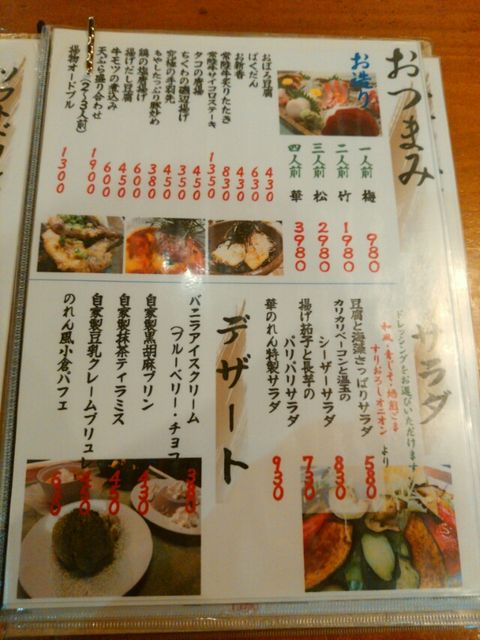 おつまみ
お造り
一人前 梅 980
二人前 竹 1980
三人前 松 2980
四人前 華 3980
おぼろ豆腐 430
ばくだん 630
お新香 430
常陸牛炙りたたき 830
常陸牛サイコロステーキ 1350
タコの唐揚 450
ちくわの磯辺揚げ 350
究極の手羽先 450
もやしたっぷり豚炒め 380
鶏の塩唐揚げ 600
揚げだし豆腐 450
牛モツの煮込み 600
天ぷら盛り合わせ(2~3人前) 1900
揚物オードブル 1300
サラダ
ドレッシングをお選びいただけます
和風・青じそ・焙煎ごま
すりおろしオニオン より
豆腐と海藻さっぱりサラダ 580
カリカリベーコンと温玉の
シーザーサラダ 830
揚げ茄子と長芋の
パリパリサラダ 730
華のれん特製サラダ 930
デザート
バニラアイスクリーム
(ブルーベリー・チョコ 380
自家製黒胡麻プリン 430
自家製抹茶ティラミス 450
自家製豆乳クレームブリュレ
のれん風小倉パフェ